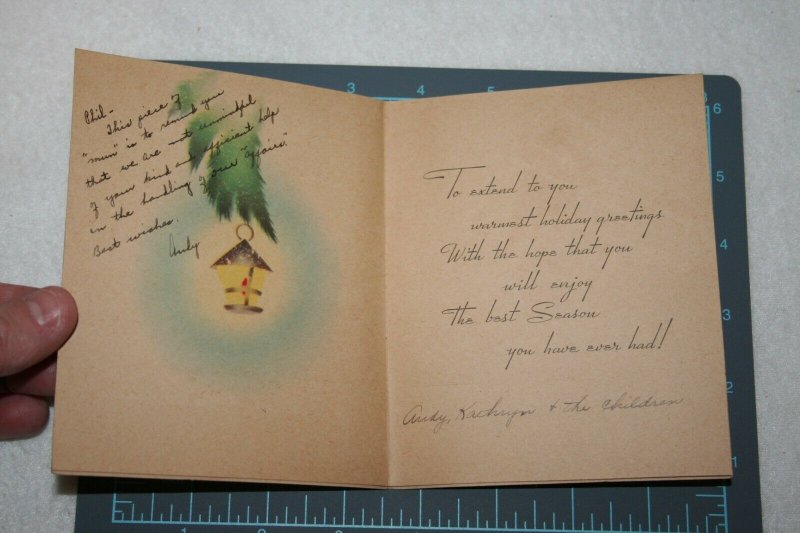 Phil-
This piece of
"mun" is to remind you
that we are not unmindful
of your kind and efficient help
in the handling of our "affairs."
Best wishes.
Andy
To extend to you
warmest holiday greetings
With the hope that you
will enjoy
The best Season
you have ever had!
Andy, Kathryn & the Children
3 4 5 6
6
5
4
3
2
1
1 2 3